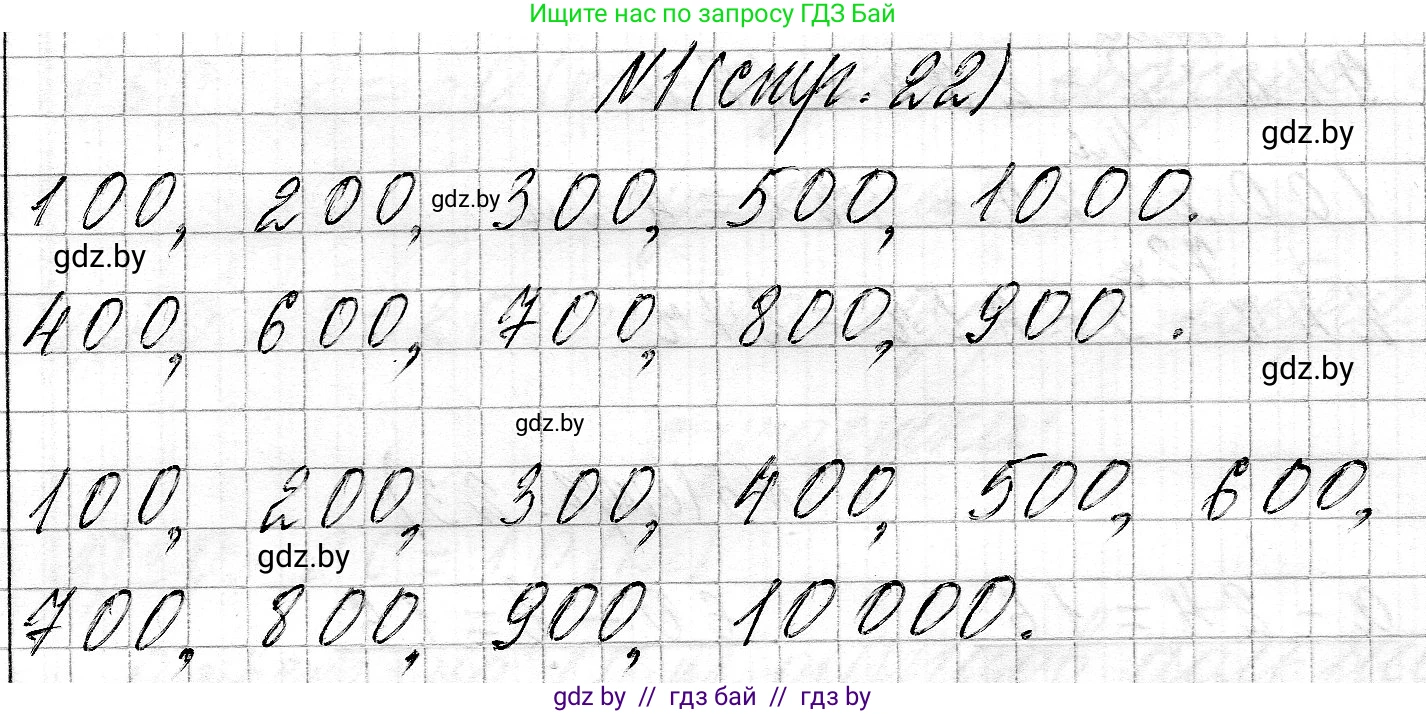 Ищите нас по запросу ГДЗ Бай
№1 (стр. 22)
gdz.by
100, 200, gdz.by 300, 500, 1000.
gdz.by
400, 600, 700, 800, 900.
gdz.by
gdz.by
100, 200, 300, 400, 500, 600,
gdz.by
700, 800, 900, 10000.
gdz by // гдз бай // гдз by